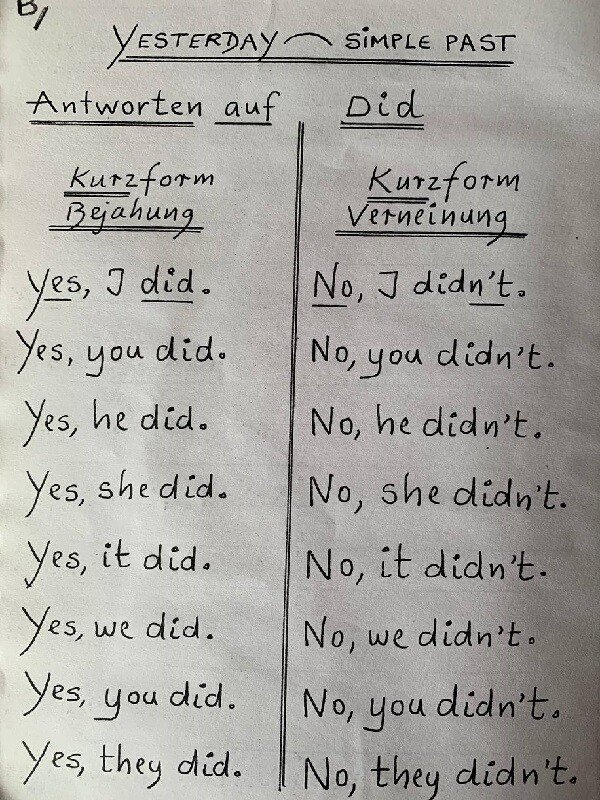 B/
YESTERDAY SIMPLE PAST
Antworten auf Did
Kurzform Kurzform
Bejahung Verneinung
Yes, I did. No, I didn't.
Yes, you did. No, you didn't.
Yes, he did. No, he didn't.
Yes, she did. No, she didn't.
Yes, it did. No, it didn't.
Yes, we did. No, we didn't.
Yes, you did. No, you didn't.
Yes, they did. No, they didn't.